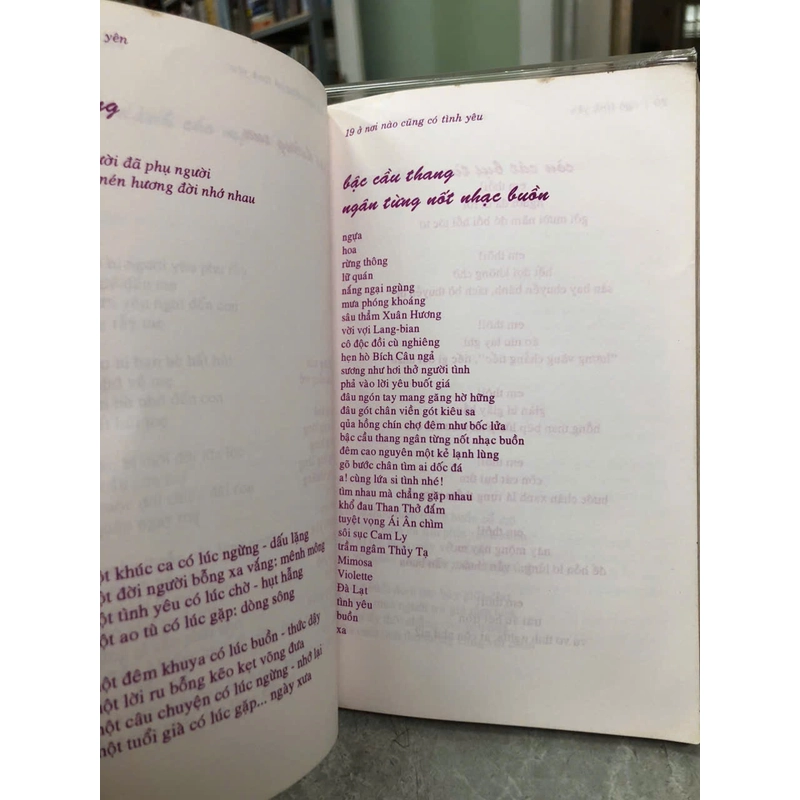 yên
ười đã phụ người
nén hương đời nhớ nhau
một khúc ca có lúc ngừng - dấu lặng
một đời người bỗng xa vắng: mênh mông
một tình yêu có lúc chờ - hụt hẫng
một ao tù có lúc gặp: dòng sông
một đêm khuya có lúc buồn - thức dậy
một lời ru bỗng kẽo kẹt võng đưa
một câu chuyện có lúc ngừng - nhớ lại
một tuổi già có lúc gặp... ngày xưa
19 ở nơi nào cũng có tình yêu
bậc cầu thang
ngân từng nốt nhạc buồn
ngựa
hoa
rừng thông
lữ quán
nắng ngại ngùng
mưa phóng khoáng
sâu thẳm Xuân Hương
vời vợi Lang-bian
cô độc đồi cù nghiêng
hẹn hò Bích Câu ngả
sương như hơi thở người tình
phả vào lời yêu buốt giá
đâu ngón tay mang găng hờ hững
đâu gót chân viền gót kiêu sa
qủa hồng chín chợ đêm như bốc lửa
bậc cầu thang ngân từng nốt nhạc buồn
đêm cao nguyên một kẻ lạnh lùng
gõ bước chân tìm ai dốc đá
a! cùng lứa si tình nhé!
tìm nhau mà chẳng gặp nhau
khổ đau Than Thở đẫm
tuyệt vọng Ái Ân chìm
sôi sục Cam Ly
trầm ngâm Thủy Tạ
Mimosa
Violette
Đà Lạt
tình yêu
buồn
xa